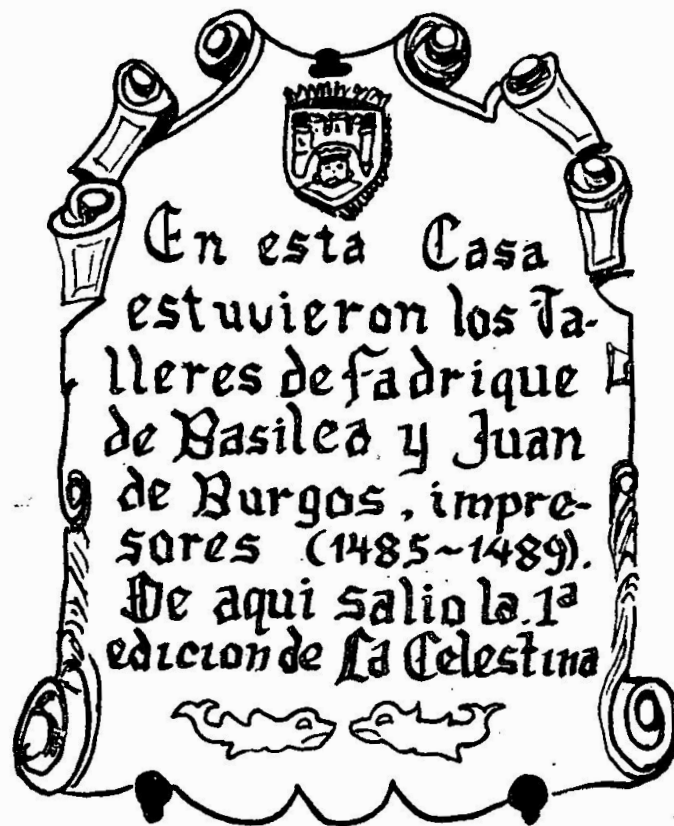 En esta Casa
estuvieron los Ta-
lleres de fadrique
de Basilea y Juan
de Burgos, impre-
sores (1485~1489).
De aqui salio la 1ª
edicion de La Celestina